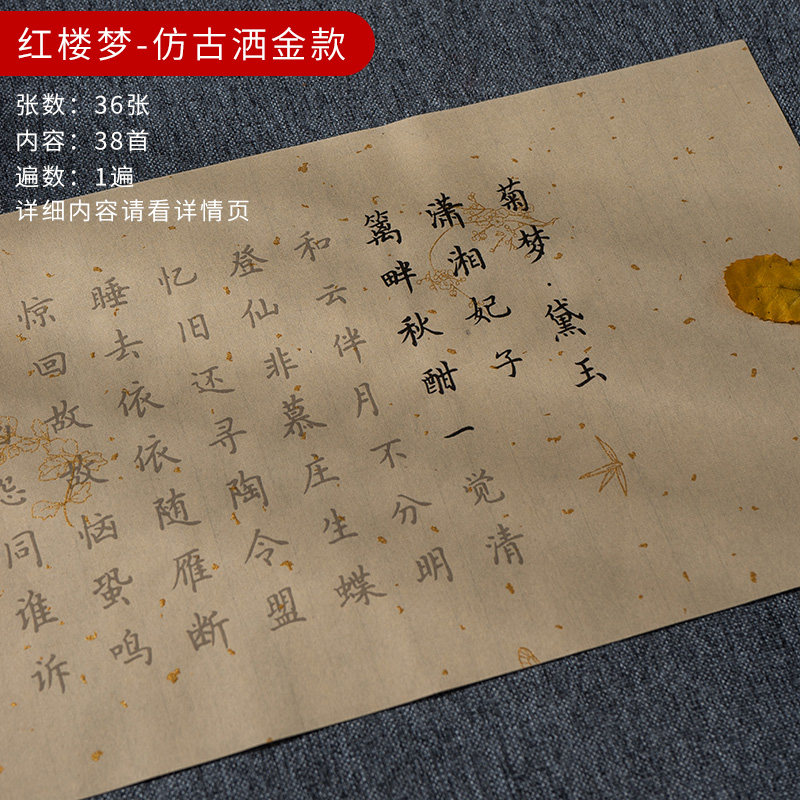 红楼梦-仿古洒金款
张数：36张
内容：38首
遍数：1遍
详细内容请看详情页
菊梦·黛玉
潇湘妃子
篱畔秋酣一觉清
和云伴月不分明
登仙非慕庄生蝶
忆旧还寻陶令盟
睡去依依随雁断
惊回故故恼蛩鸣
怨同谁诉